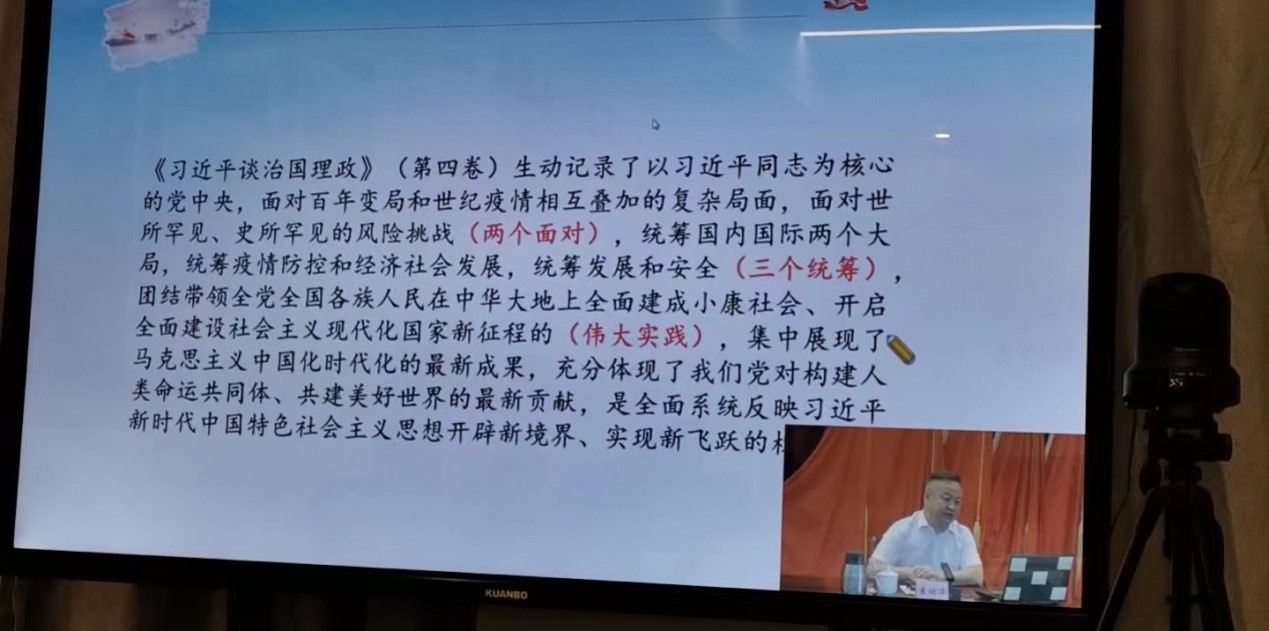 《习近平谈治国理政》（第四卷）生动记录了以习近平同志为核心
的党中央，面对百年变局和世纪疫情相互叠加的复杂局面，面对世
所罕见、史所罕见的风险挑战（两个面对），统筹国内国际两个大
局，统筹疫情防控和经济社会发展，统筹发展和安全（三个统筹），
团结带领全党全国各族人民在中华大地上全面建成小康社会、开启
全面建设社会主义现代化国家新征程的（伟大实践），集中展现了
马克思主义中国化时代化的最新成果，充分体现了我们党对构建人
类命运共同体、共建美好世界的最新贡献，是全面系统反映习近平
新时代中国特色社会主义思想开辟新境界、实现新飞跃的
KUANBO